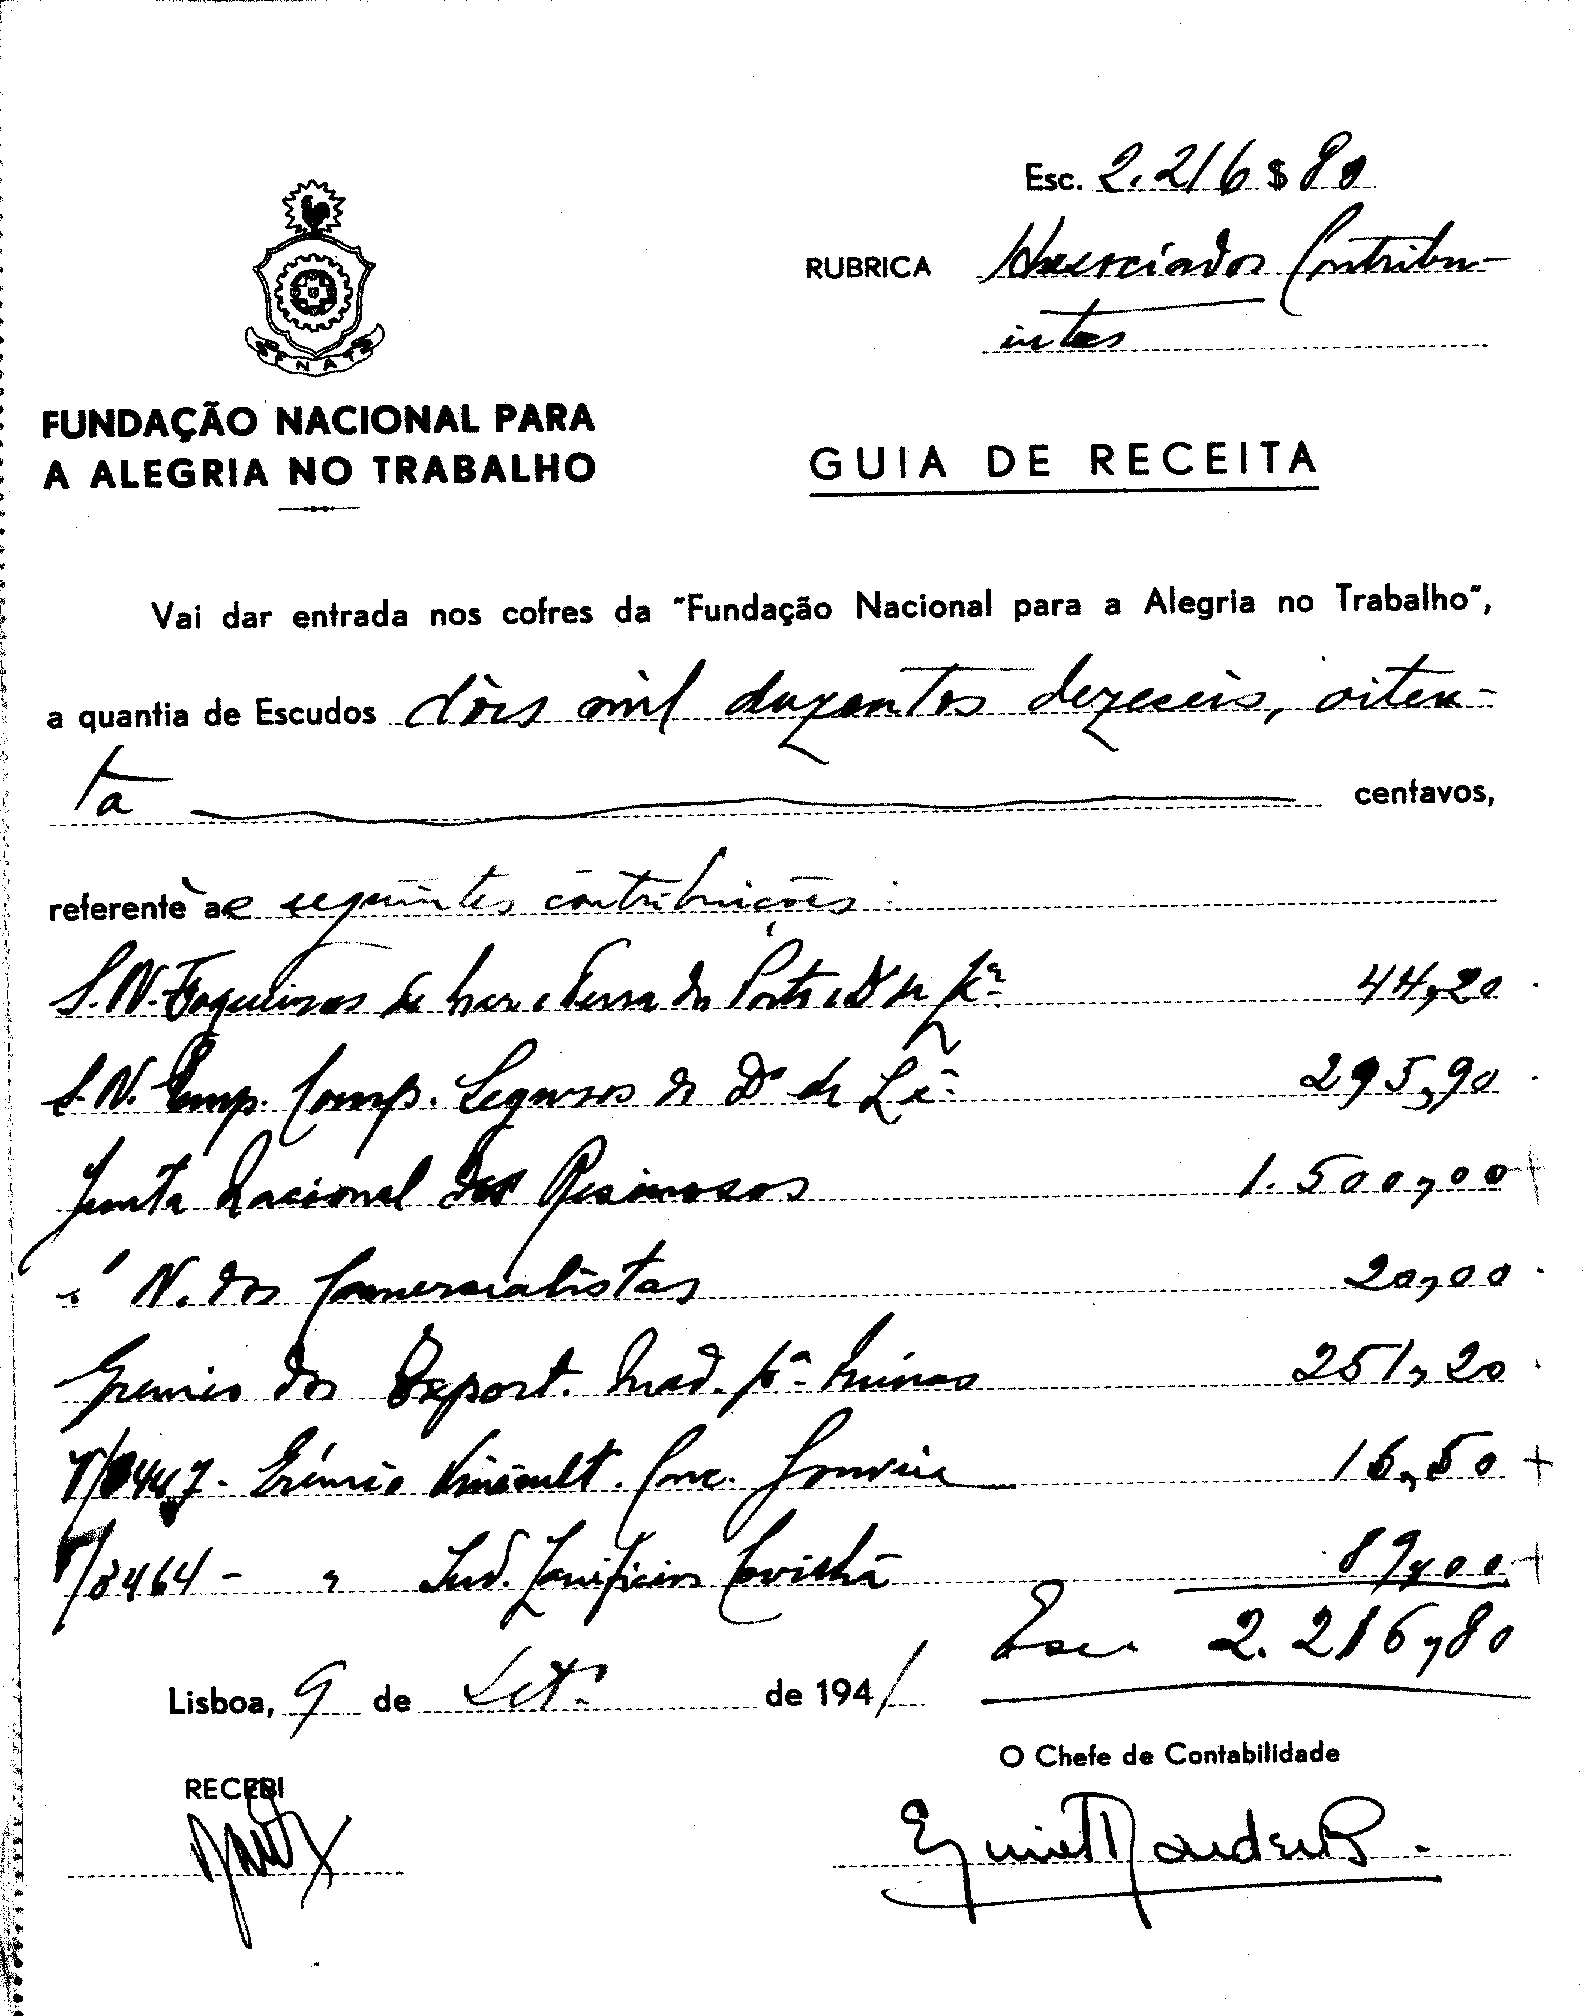 Esc. 2.216$80
RUBRICA Associados Contribu-
intes
FNAT
FUNDAÇÃO NACIONAL PARA
A ALEGRIA NO TRABALHO
GUIA DE RECEITA
Vai dar entrada nos cofres da "Fundação Nacional para a Alegria no Trabalho",
a quantia de Escudos dois mil duzentos dezeseis, oiten-
ta centavos,
referente às seguintes contribuições:
S.N. Fogueiros de Mar e Terra do Porto e D. de 44,20
S.N. Emp. Comp. Seguros do Dº de Lª 295,90
Junta Nacional dos Resinosos 1.500,00
" N. dos Comercialistas 20,00
Gremio dos Export. Mad. pª Minas 251,20
8447 - Grémio Vinicult. Conc. Gouveia 16,50
8464 - " Ind. Lanifícios Covilhã 89,00
Esc. 2.216,80
Lisboa, 9 de Setº de 1941
O Chefe de Contabilidade
RECEBI